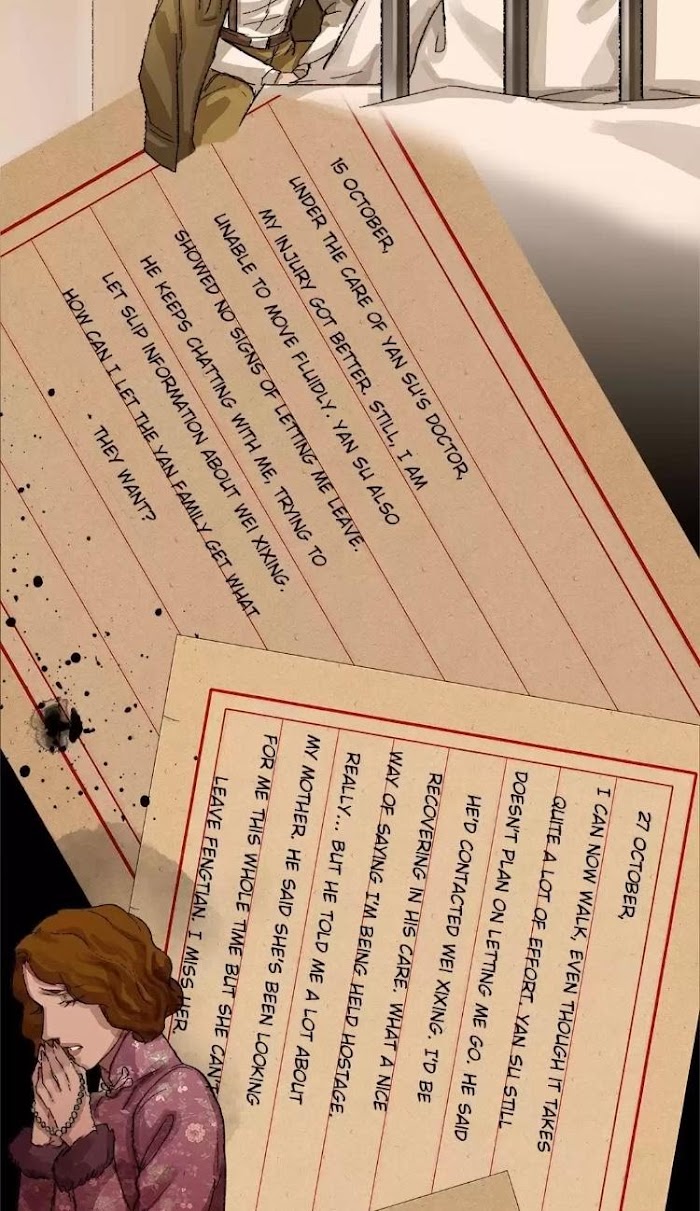 15 OCTOBER,
UNDER THE CARE OF YAN SU'S DOCTOR,
MY INJURY GOT BETTER. STILL, I AM
UNABLE TO MOVE FLUIDLY. YAN SU ALSO
SHOWED NO SIGNS OF LETTING ME LEAVE.
HE KEEPS CHATTING WITH ME, TRYING TO
LET SLIP INFORMATION ABOUT WEI XIXING.
HOW CAN I LET THE YAN FAMILY GET WHAT
THEY WANT?
27 OCTOBER,
I CAN NOW WALK, EVEN THOUGH IT TAKES
QUITE A LOT OF EFFORT. YAN SU STILL
DOESN'T PLAN ON LETTING ME GO. HE SAID
HE'D CONTACTED WEI XIXING. I'D BE
RECOVERING IN HIS CARE. WHAT A NICE
WAY OF SAYING I'M BEING HELD HOSTAGE,
REALLY... BUT HE TOLD ME A LOT ABOUT
MY MOTHER. HE SAID SHE'S BEEN LOOKING
FOR ME THIS WHOLE TIME BUT SHE CAN'T
LEAVE FENGTIAN. I MISS HER.